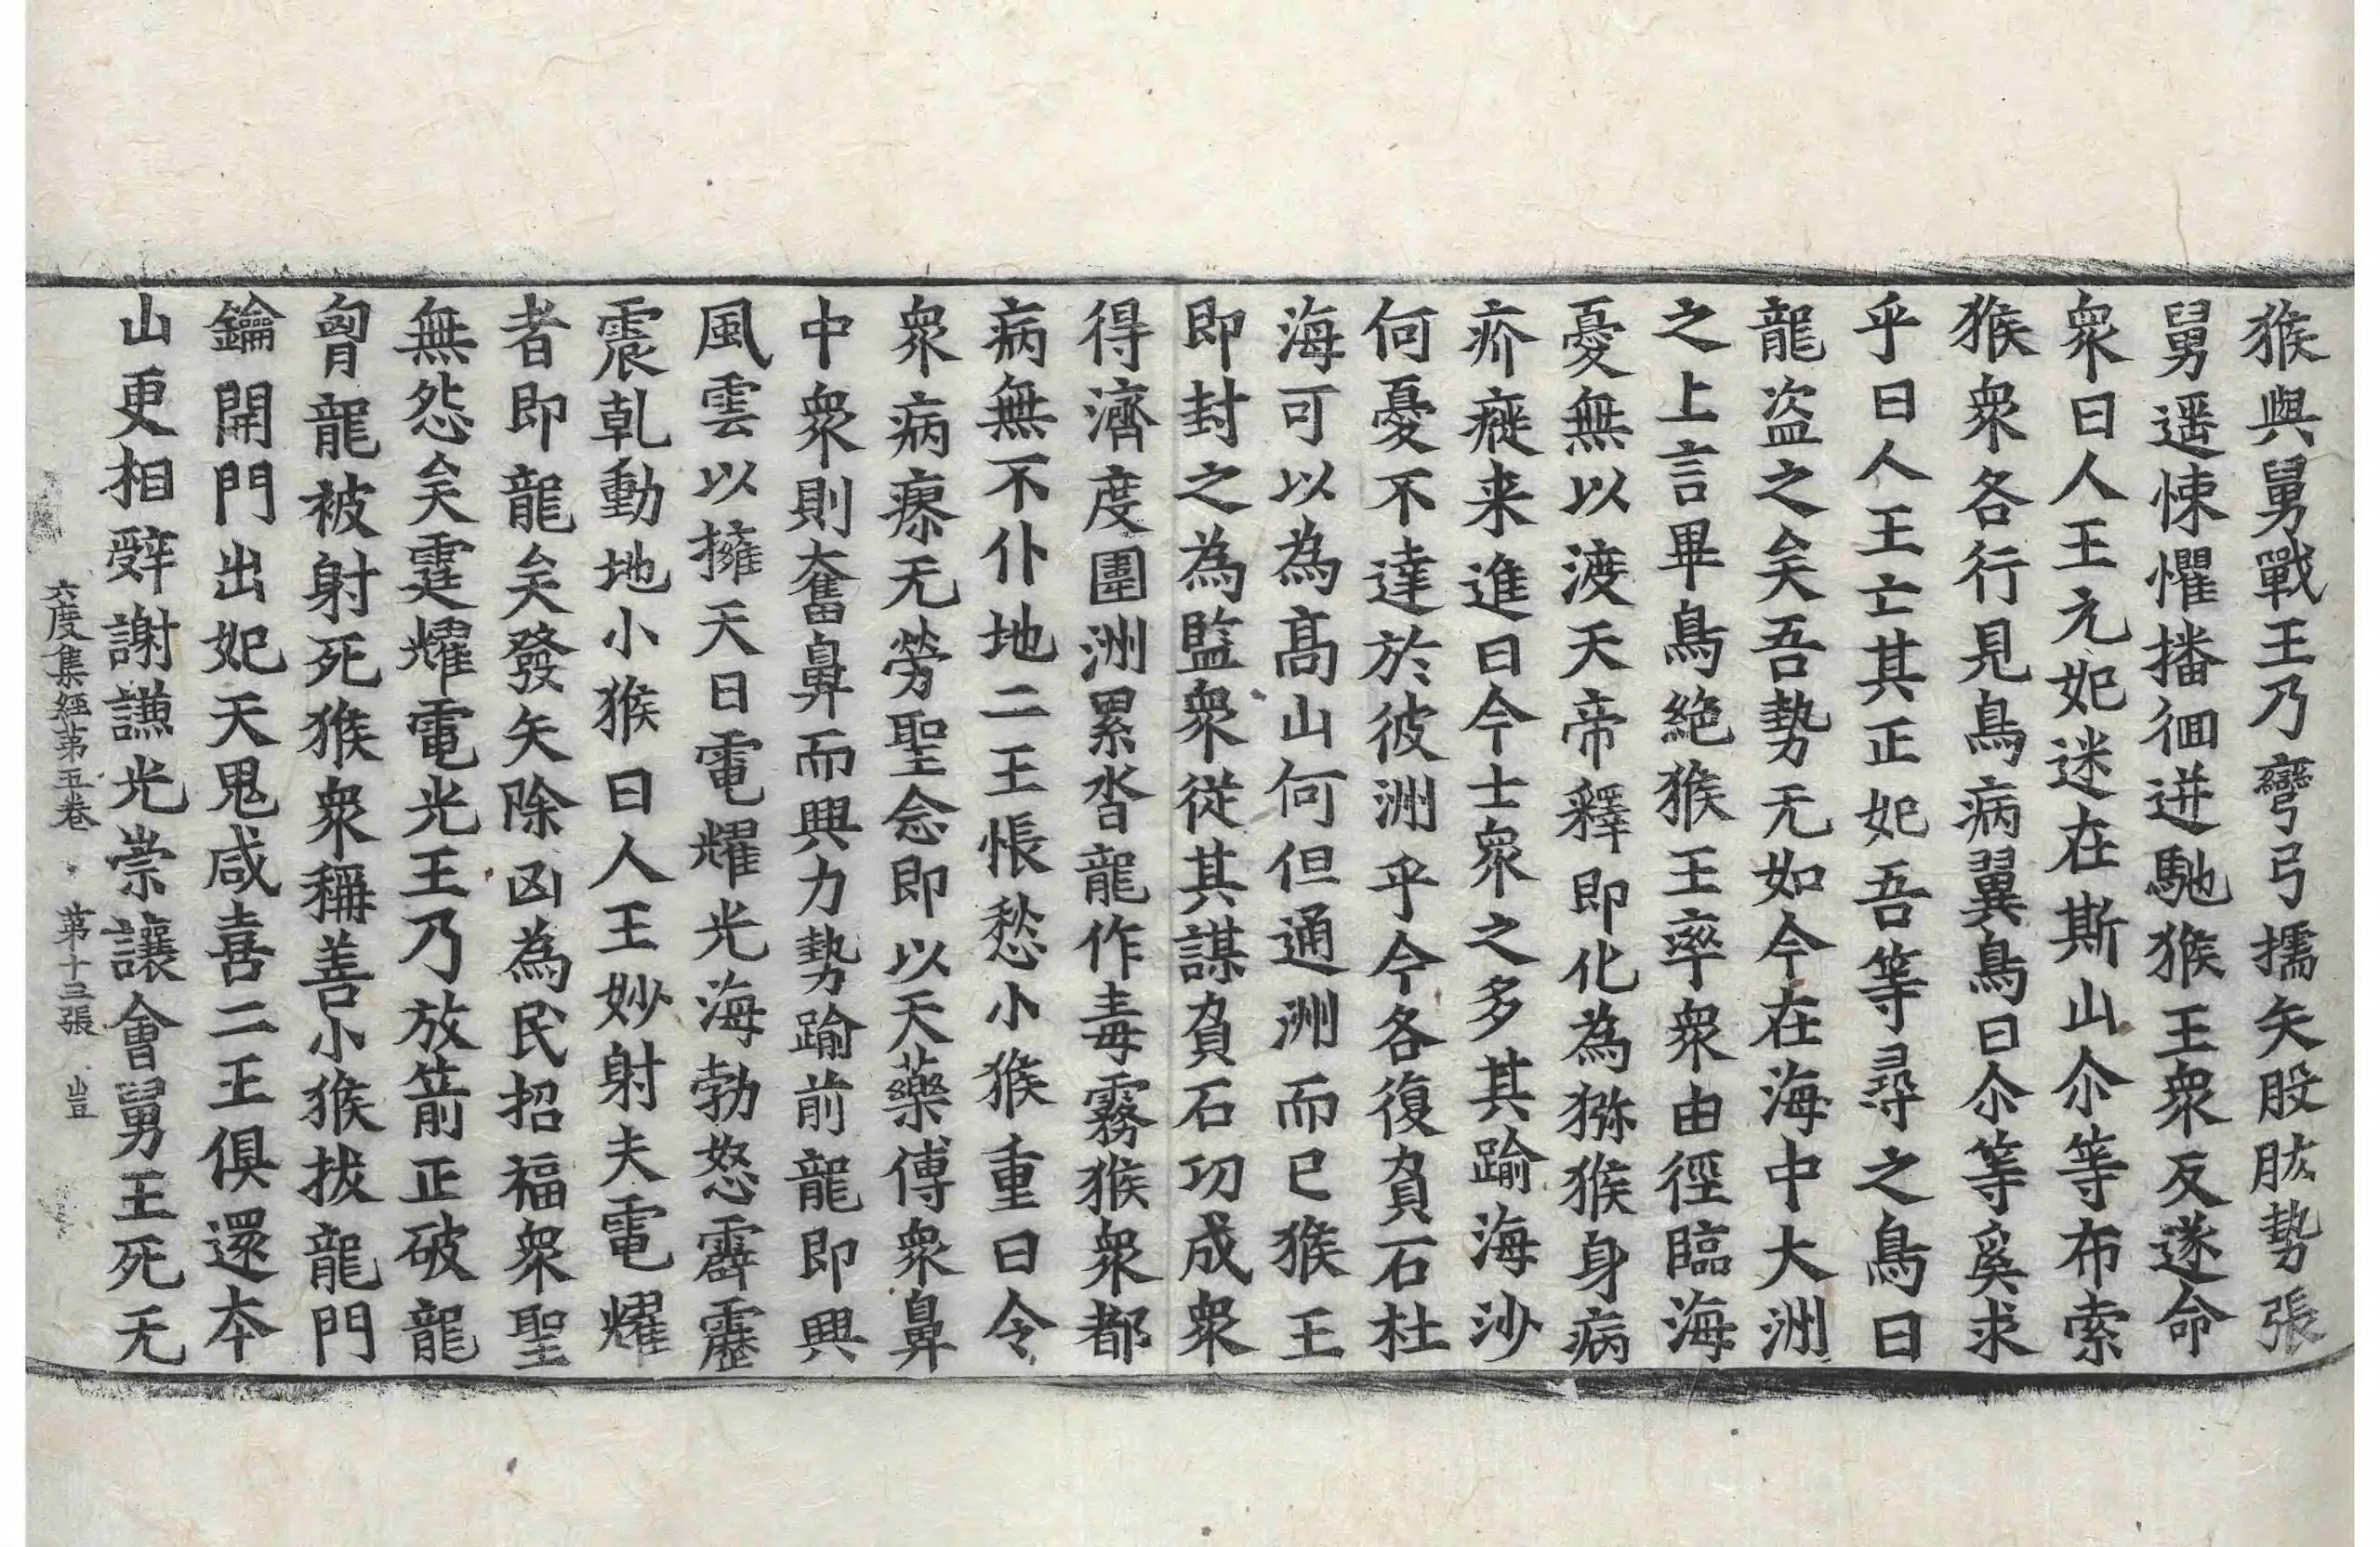 猴與舅戰王乃彎弓擩矢股肱勢張
舅遥悚懼播徊迸馳猴王衆反遂命
衆曰人王元妃迷在斯山尒等布索
猴衆各行見鳥病翼鳥曰尒等奚求
乎曰人王亡其正妃吾等尋之鳥曰
龍盗之矣吾勢无如今在海中大洲
之上言畢鳥絶猴王率衆由徑臨海
憂無以渡天帝釋即化為猕猴身病
疥癬来進曰今士衆之多其踰海沙
何憂不達於彼洲乎今各復負石杜
海可以為髙山何但通洲而已猴王
即封之為監衆從其謀負石功成衆
得濟度圍洲累沓龍作毒霧猴衆都
病無不仆地二王悵愁小猴重曰令
衆病瘳无勞聖念即以天藥傅衆鼻
中衆則奮鼻而興力勢踰前龍即興
風雲以擁天日電耀光海勃怒霹靂
震乹動地小猴曰人王妙射夫電耀
者即龍矣發矢除凶為民招福衆聖
無怨矣霆耀電光王乃放箭正破龍
胷龍被射死猴衆稱善小猴拔龍門
鑰開門出妃天鬼咸喜二王俱還本
山更相辤謝謙光崇讓會舅王死无
六度集經苐五卷 苐十三張 豈